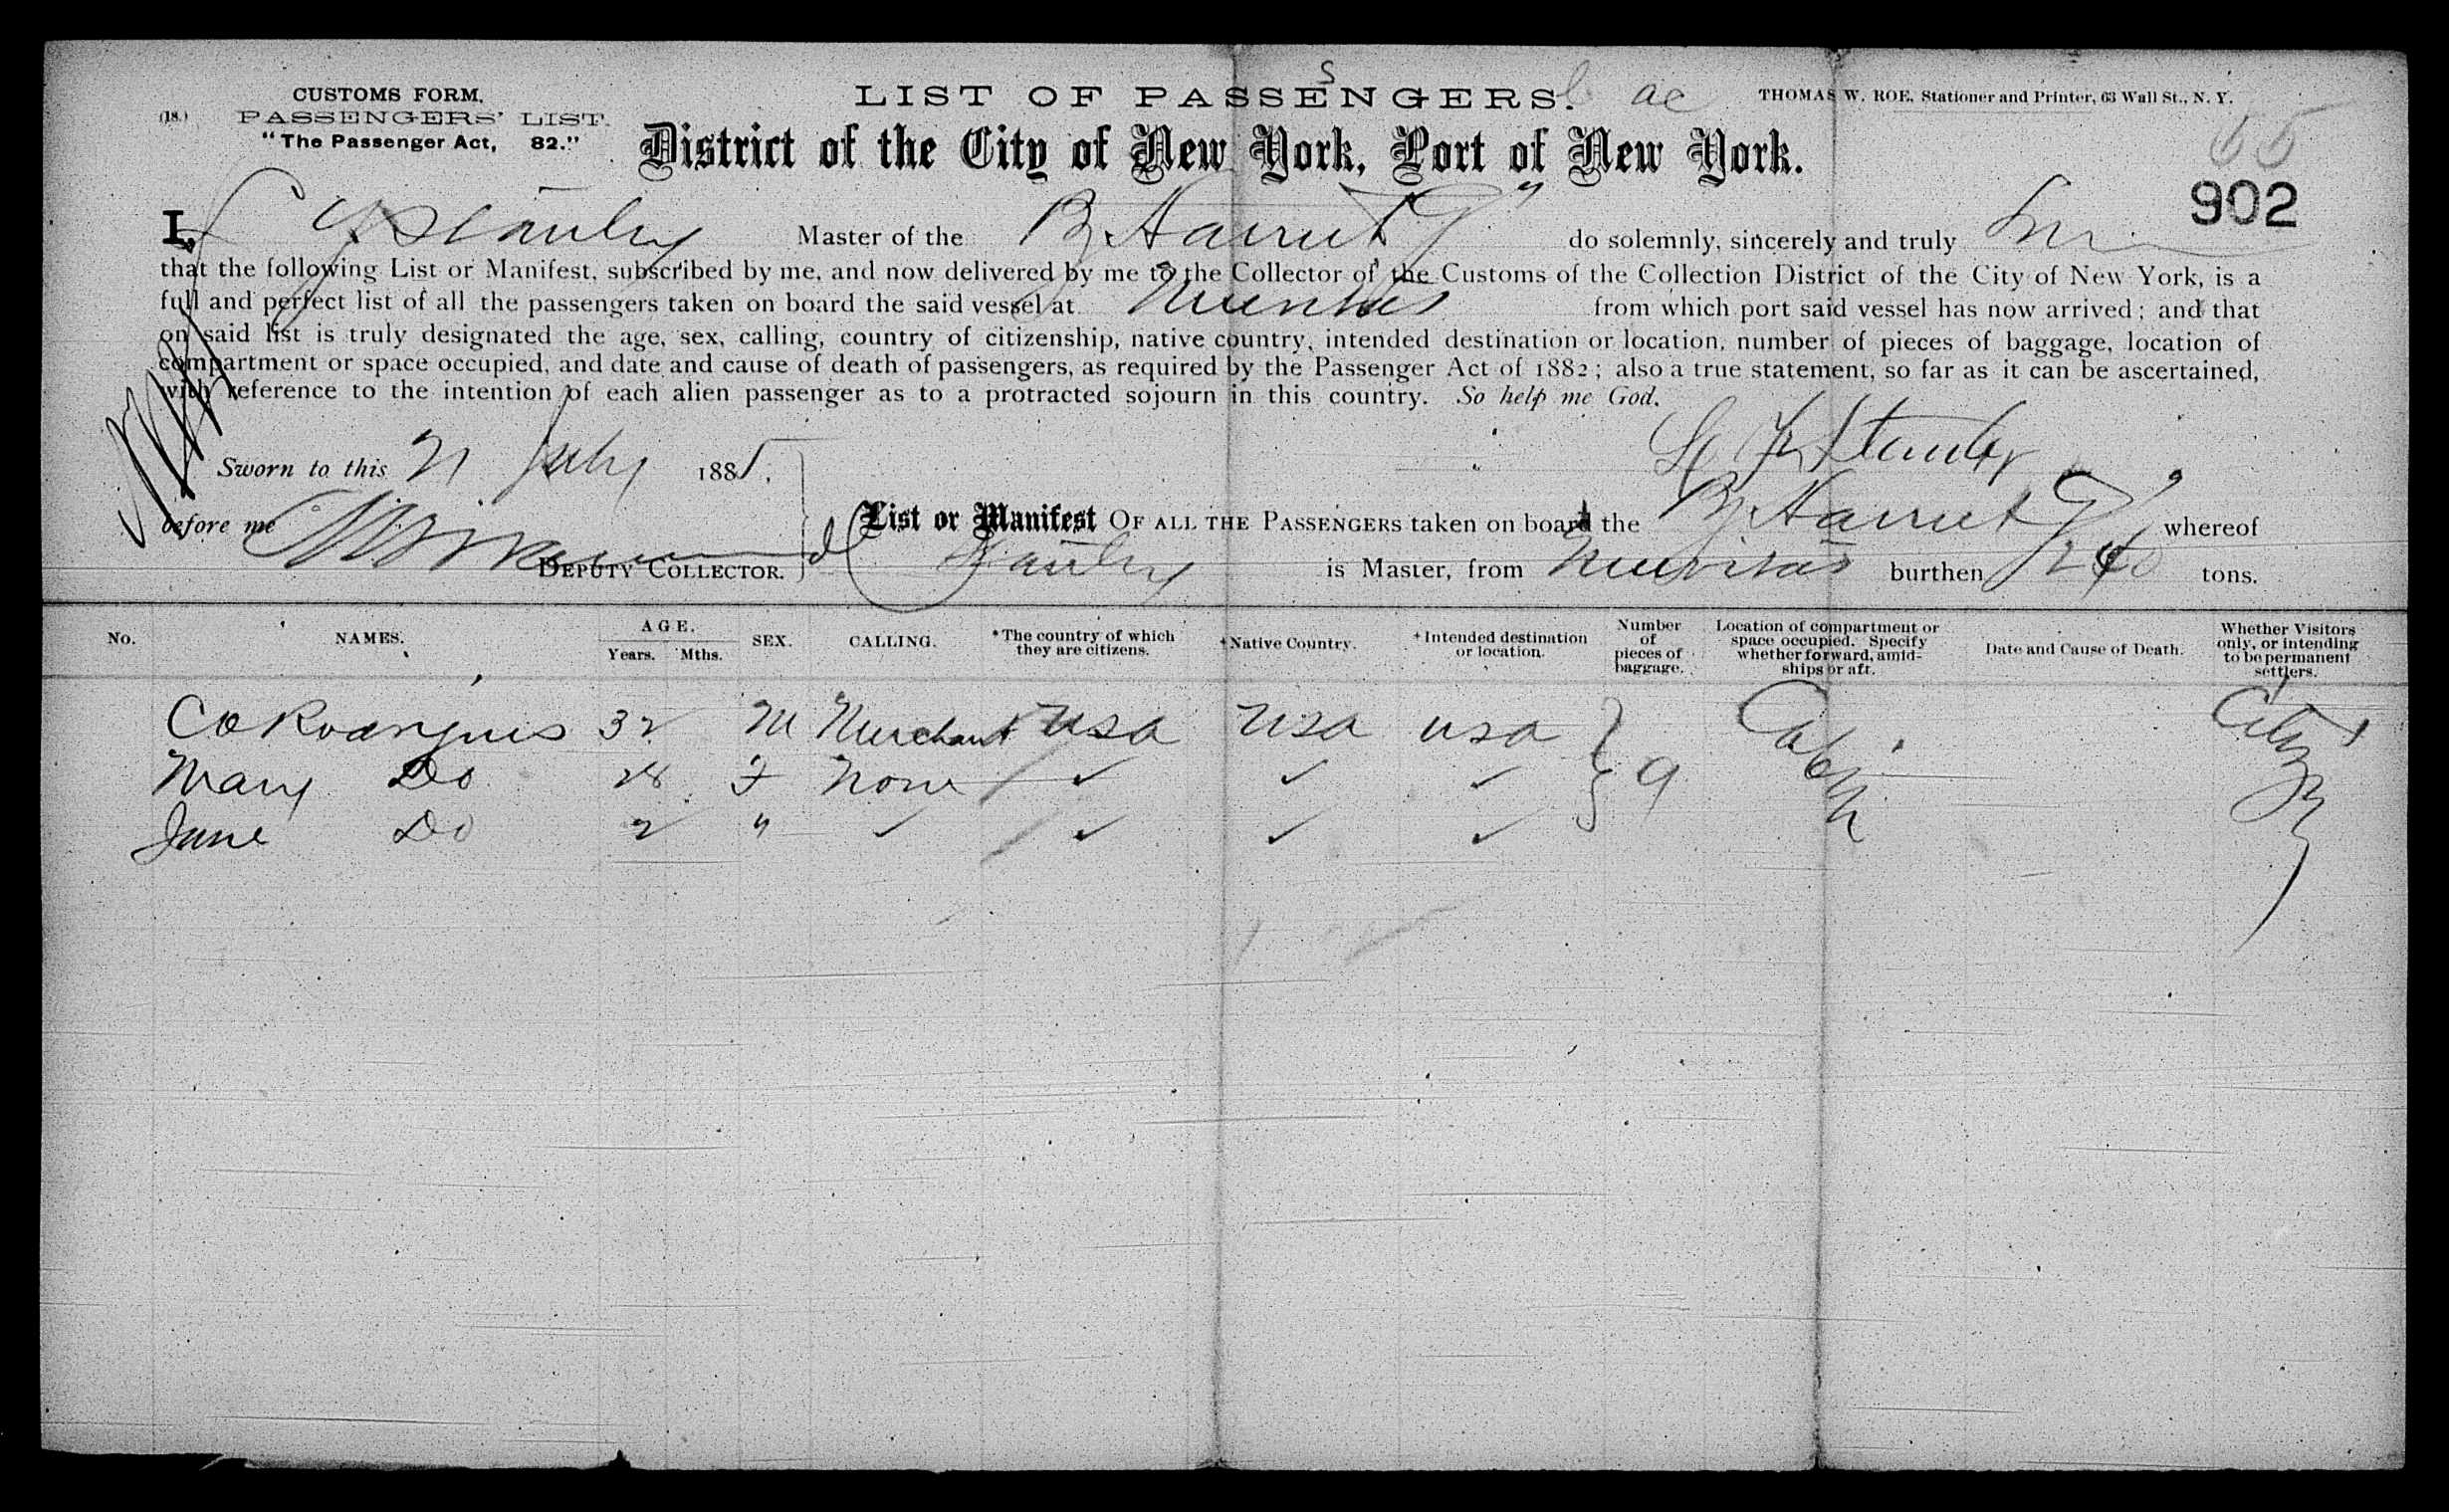 S
CUSTOMS FORM.
LIST OF PASSENGERS. ac
THOMAS W. ROE, Stationer and Printer, 63 Wall St., N. Y.
(18.) PASSENGERS' LIST.
"The Passenger Act, 82."
District of the City of New York, Port of New York.
902
I, Stanley Master of the B. Harriet G" do solemnly, sincerely and truly
that the following List or Manifest, subscribed by me, and now delivered by me to the Collector of the Customs of the Collection District of the City of New York, is a
full and perfect list of all the passengers taken on board the said vessel at from which port said vessel has now arrived; and that
on said list is truly designated the age, sex, calling, country of citizenship, native country, intended destination or location, number of pieces of baggage, location of
compartment or space occupied, and date and cause of death of passengers, as required by the Passenger Act of 1882; also a true statement, so far as it can be ascertained,
with reference to the intention of each alien passenger as to a protracted sojourn in this country. So help me God.
Stanley
Sworn to this 21 July 1885.
before me
List or Manifest OF ALL THE PASSENGERS taken on board the B Harriet G" whereof
DEPUTY COLLECTOR. Stanley is Master, from Nuevitas burthen 240 tons.
No. NAMES. AGE. Years. Mths. SEX. CALLING. *The country of which they are citizens. +Native Country. +Intended destination or location. Number of pieces of baggage. Location of compartment or space occupied. Specify whether forward, amid-ships or aft. Date and Cause of Death. Whether Visitors only, or intending to be permanent settlers.
Co Rodrigues 32 M Merchant USA USA USA Cabin
Mary Do 28 F None ✓ ✓ ✓ 9
Jane Do 2 " ✓ ✓ ✓ ✓